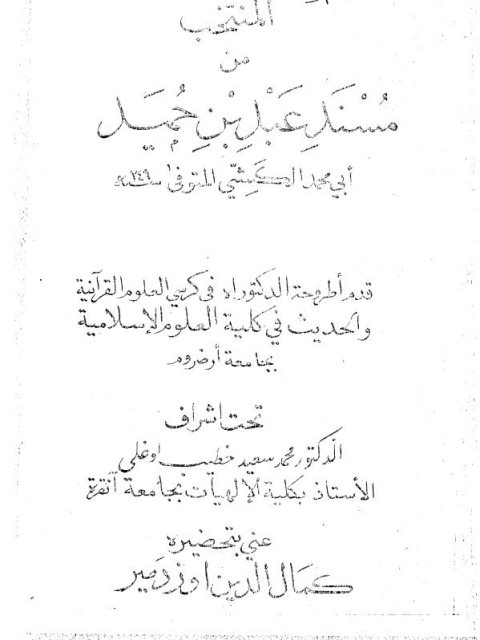 المنتخب
من
مُسْنَدِ عَبْدِ بْنِ حُمَيد
أبي محمد الكَشِّي المتوفى سنة ٢٤٩
قدم أطروحة الدكتوراه في كرسي العلوم القرآنية
والحديث في كلية العلوم الإسلامية
بجامعة أرضروم
تحت اشراف
الدكتور محمد سعيد خطيب اوغلي
الأستاذ بكلية الإلهيات بجامعة آنقرة
عني بتحضيره
كمال الدين اوزدمير